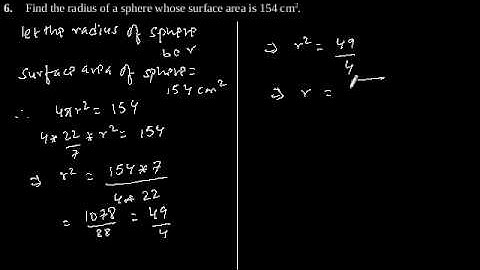 6. Find the radius of a sphere whose surface area is 154 cm².
let the radius of sphere
be r
surface area of sphere =
154 cm²
∴ 4πr² = 154
4 * 22/7 * r² = 154
⇒ r² = 154*7/4*22
= 1078/88 = 49/4
⇒ r² = 49/4
⇒ r =